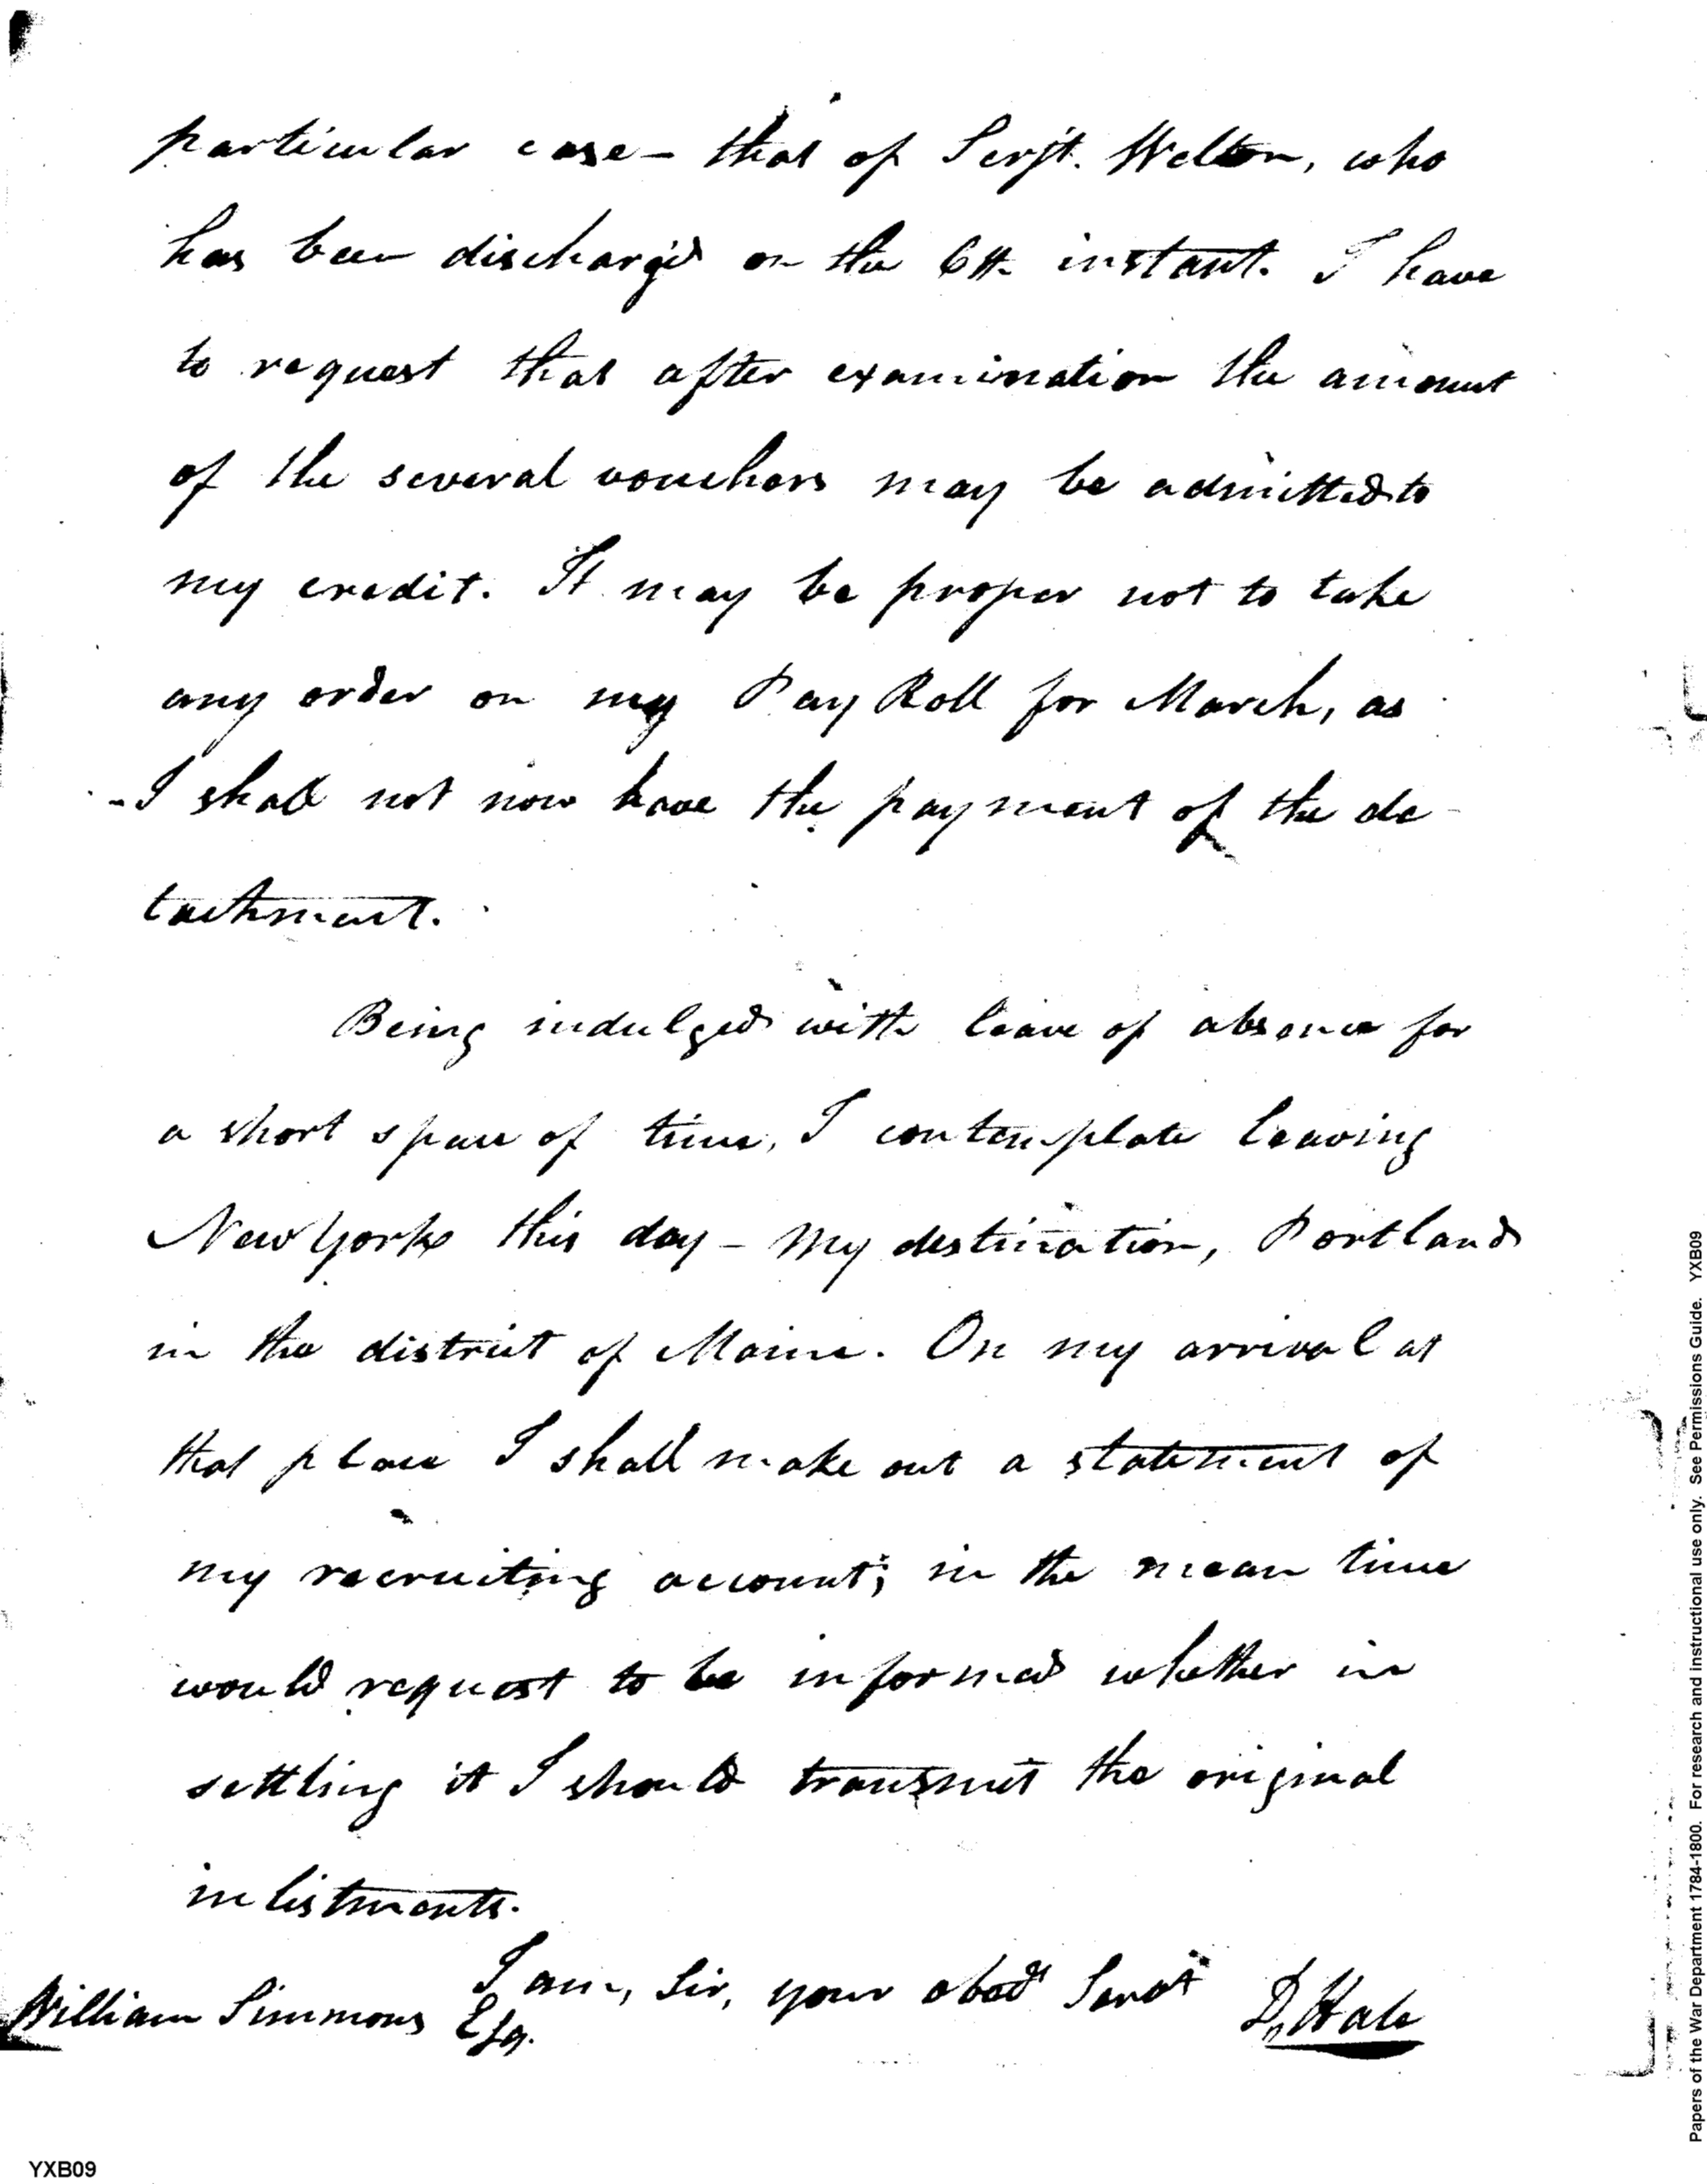 particular case – that of Serjt. Welton, who
has been discharg'd on the 6th instant. I have
to request that after examination the amount
of the several vouchers may be admitted to
my credit. It may be proper not to take
any order on my Pay Roll for March, as
I shall not now have the payment of the de-
tachment.
Being indulged with leave of absence for
a short space of time, I contemplate leaving
New York this day – My destination, Portland
in the district of Maine. On my arrival at
that place I shall make out a statement of
my recruiting account; in the mean time
would request to be informed whether in
settling it I should transmit the original
inlistments.
I am, Sir, your obedt Servt
D. Hale
William Simmons Esq.
Papers of the War Department 1784-1800. For research and instructional use only. See Permissions Guide. YXB09
YXB09